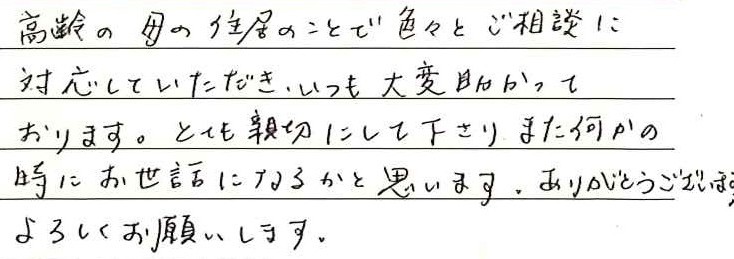 高齢の母の住居のことで色々とご相談に
対応していただき、いつも大変助かって
おります。とても親切にして下さり また何かの
時にお世話になるかと思います。ありがとうございます
よろしくお願いします。